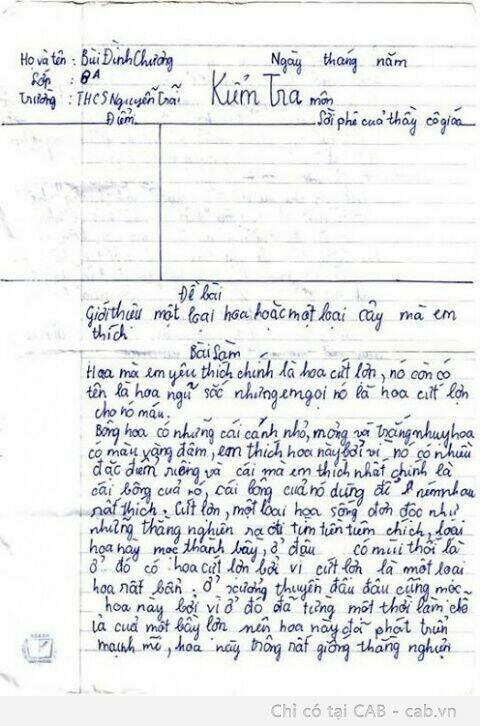 Họ và tên : Bùi Đình Chương
Ngày tháng năm
Lớp : 8A
Trường : THCS Nguyễn Trãi
Kiểm Tra môn
Điểm
Lời phê của thầy cô giáo
Đề bài
Giới thiệu một loại hoa hoặc một loại cây mà em
thích
Bài Làm
Hoa mà em yêu thích chính là hoa cứt lợn, nó còn có
tên là hoa ngũ sắc nhưng em gọi nó là hoa cứt lợn
cho nó máu.
Bông hoa có những cái cánh nhỏ, mỏng và trắng nhuỵ hoa
có màu vàng đậm, em thích hoa này bởi vì nó có nhiều
đặc điểm riêng và cái mà em thích nhất chính là
cái bông của nó, cái bông của nó dùng để ném nhau
rất thích. Cứt lợn, một loại hoa sống đơn độc như
những thằng nghiện ra đi tìm tiên tiêm chích, loài
hoa này mọc thành bầy, ở đâu có mùi thối là
ở đó có hoa cứt lợn bởi vì cứt lợn là một loại
hoa rất bẩn. Ở xưởng thuyền đâu đâu cũng mọc
hoa này bởi vì ở đó đã từng một thời làm chỗ
ỉa của một bầy lợn nên hoa này đã phát triển
mạnh mẽ, hoa này trông rất giống thằng nghiện
Chỉ có tại CAB - cab.vn